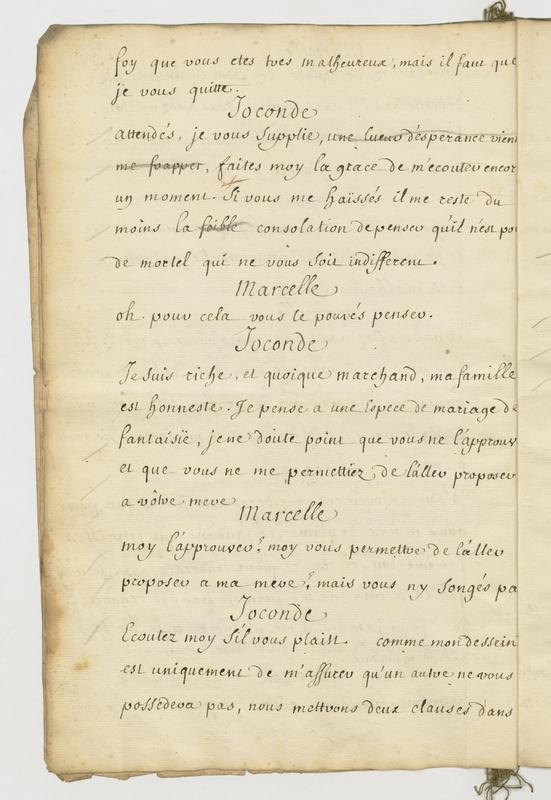 foy que vous etes tres malheureux, mais il faut que
je vous quitte.
Joconde
attendés, je vous supplie, une lueur d'esperance vient
me frapper, faites moy la grace de m'ecouter encor
un moment. Si vous me haïssés il me reste du
moins la foible consolation de penser qu'il n'est po
de mortel qui ne vous soit indifferent.
Marcelle
oh. pour cela vous le pouvés penser.
Joconde
Je suis riche, et quoique marchand, ma famille
est honneste. Je pense a une Espece de mariage de
fantaisie, je ne doute point que vous ne l'approuv
et que vous ne me permettiez de l'aller proposer
a vôtre mere
Marcelle
moy l'approuver? moy vous permettre de l'aller
proposer a ma mere? mais vous n'y songés pa
Joconde
Ecoutez moy s'il vous plaist. comme mon dessein
est uniquement de m'assurer qu'un autre ne vous
possedera pas, nous mettrons deux clauses dans